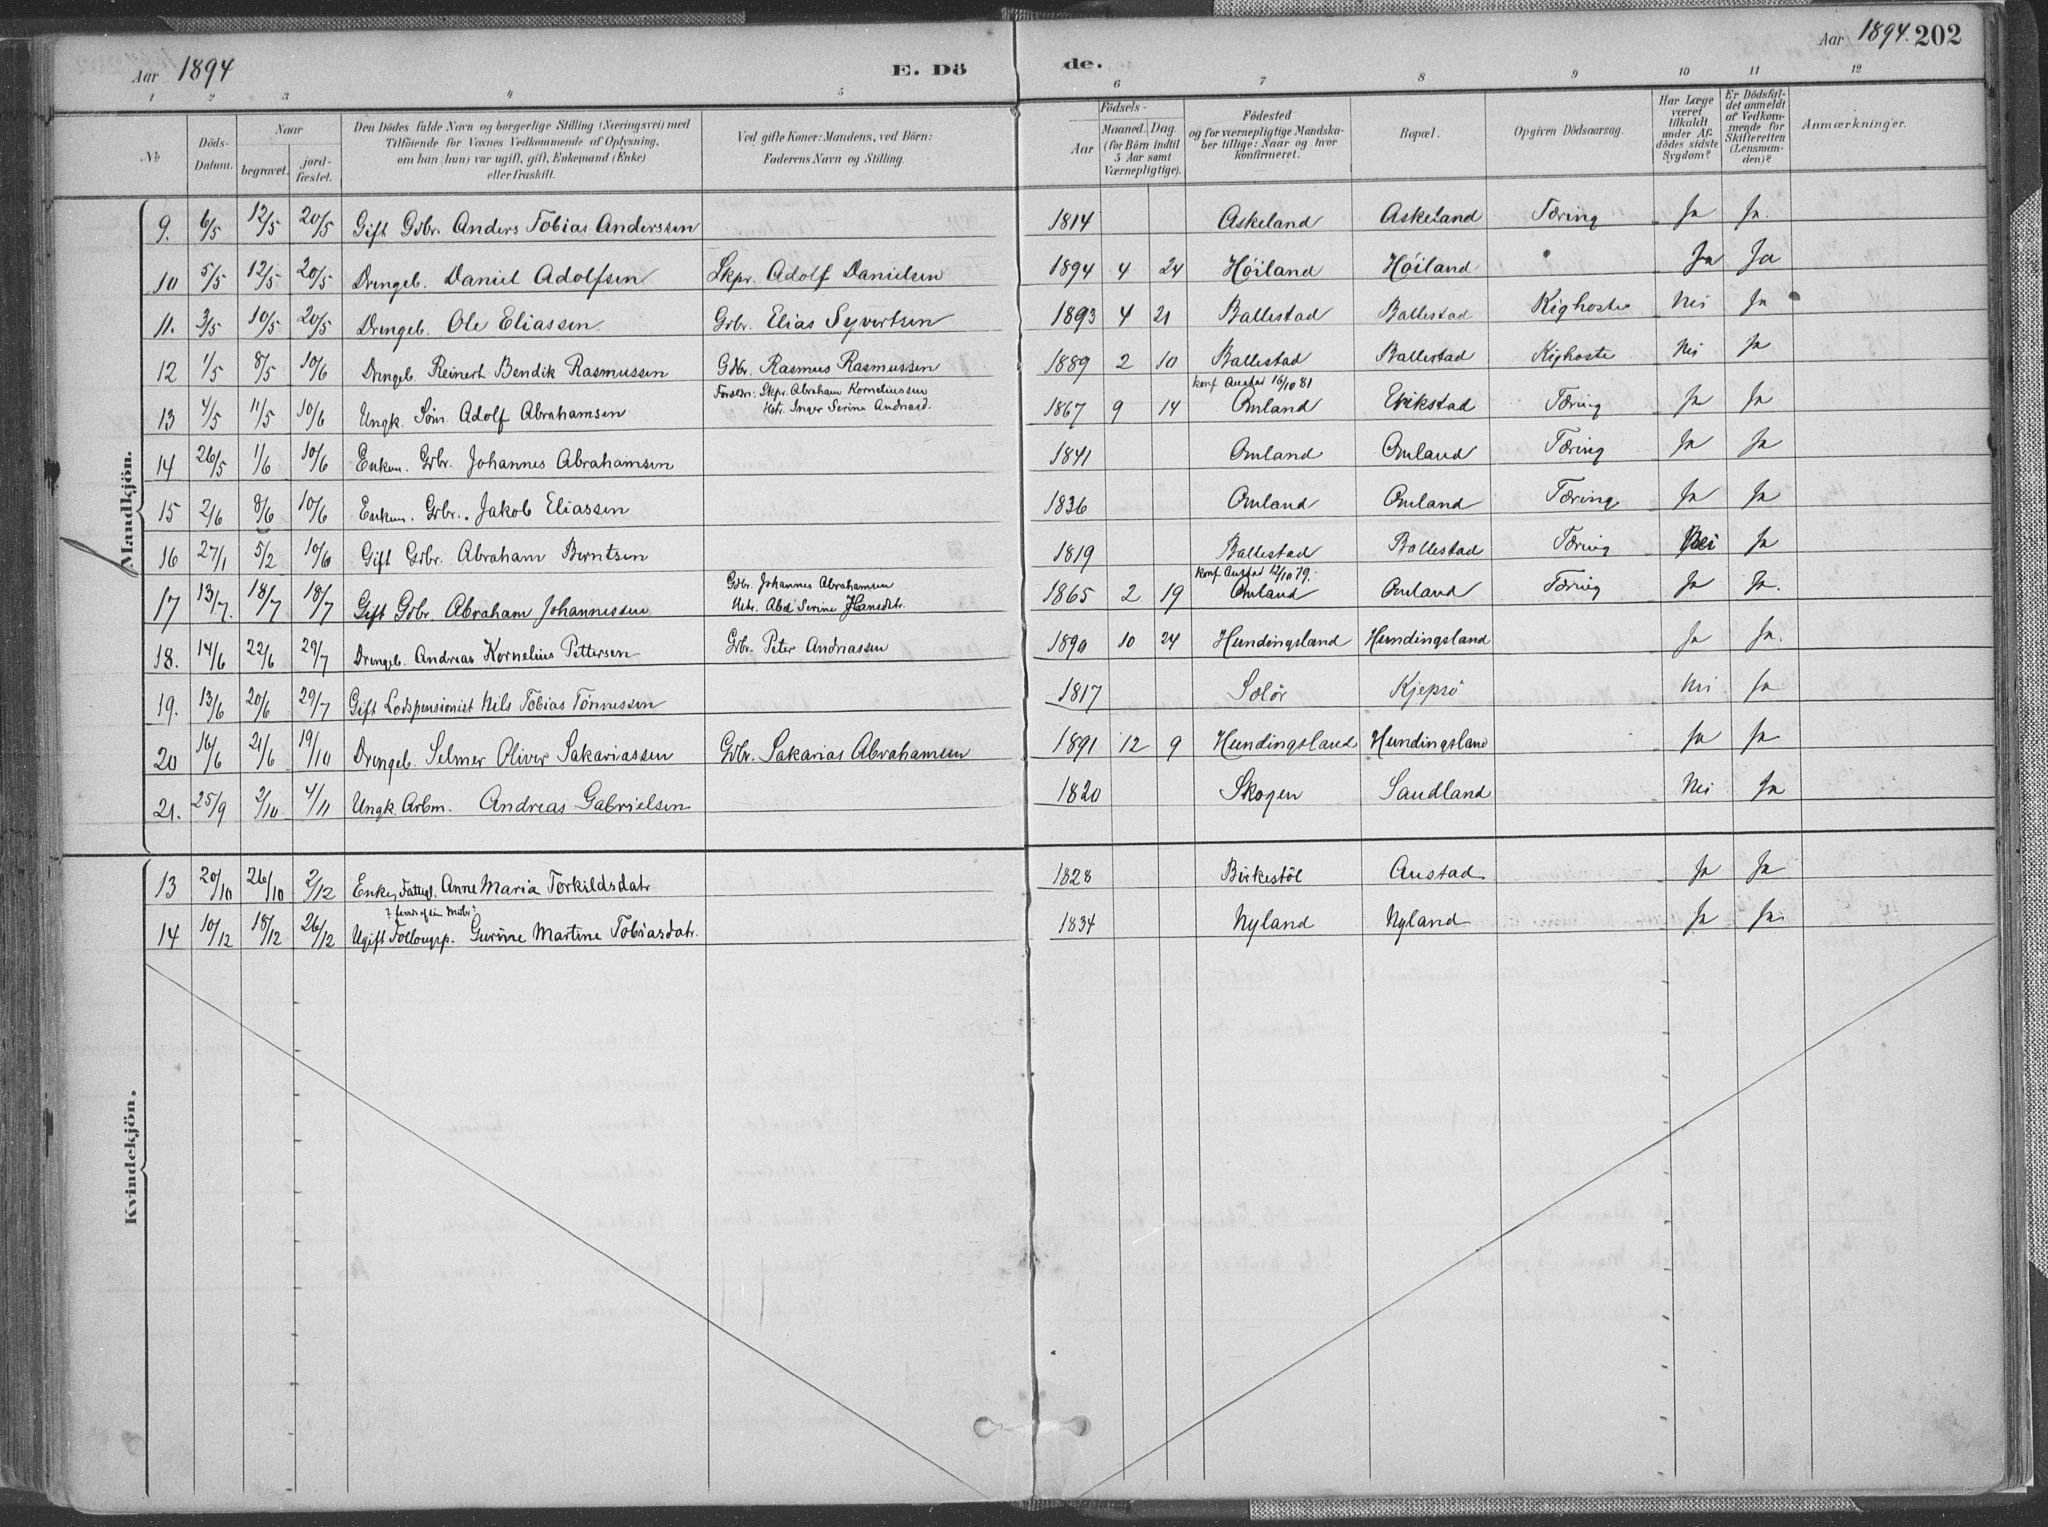 Aar 1894
E. Dö
de.
Aar 1894. 202
1 2 3 4 5 6 7 8 9 10 11 12
No
Döds-Datum.
Naar
begravet.
jord-fæstet.
Den Dödes fulde Navn og borgerlige Stilling (Næringsvei) med
Tilföiende for Voxnes Vedkommende af Oplysning,
om han (hun) var ugift, gift, Enkemand (Enke)
eller fraskilt.
Ved gifte Koner: Mandens, ved Börn:
Faderens Navn og Stilling.
Födsels-
Aar
Maaned. Dag.
(for Börn indtil
5 Aar samt
Værnepligtige).
Födested
og for værnepligtige Mandska-
ber tillige: Naar og hvor
konfirmeret.
Bopæl.
Opgiven Dödsaarsag.
Har Læge
været
tilkaldt
under Af-
dödes sidste
Sygdom?
Er Dödsfal-
det anmeldt
af Vedkom-
mende for
Skifteretten
(Lensman-
den)?
Anmærkninger.
Mandkjön.
9. 6/5 12/5 20/5 Gift Gdbr. Anders Tobias Anderssen 1814 Askeland Askeland Tæring Ja Ja.
10 5/5 12/5 20/5 Drengeb. Daniel Adolfsen Skpr. Adolf Danielsen 1894 4 24 Höiland Höiland Ja Ja
11. 3/5 10/5 20/5 Drengeb. Ole Eliassen Gdbr. Elias Syvertsen 1893 4 21 Ballestad Ballestad Kighoste Nei Ja
12 1/5 8/5 10/6 Drengeb. Reinert Bendik Rasmussen Gdbr. Rasmus Rasmussen 1889 2 10 Ballestad Ballestad Kighoste Nei Ja
Forældr: Skpr. Abraham Korneliussen konf. Austad 16/10 81
13 4/5 11/5 10/6 Ungk. Söm. Adolf Abrahamsen Hstr. Inger Serine Andreasd. 1867 9 14 Omland Erikstad Tæring Ja Ja
14 26/5 1/6 10/6 Enkem. Gdbr. Johannes Abrahamsen 1841 Omland Omland Tæring Ja Ja
15 2/6 8/6 10/6 Enkem. Gdbr. Jakob Eliassen 1836 Omland Omland Tæring Ja Ja
16 27/1 5/2 10/6 Gift Gdbr. Abraham Berntsen 1819 Ballestad Ballestad Tæring Nei Ja
Gdbr. Johannes Abrahamsen konf. Austad 12/10 79.
17 13/7. 18/7 18/7 Gift Gdbr. Abraham Johannessen Hstr. Abel Serine Hansdtr. 1865 2 19 Omland Omland Tæring Ja Ja.
18. 14/6 22/6 29/7 Drengeb. Andreas Kornelius Pettersen Gdbr. Peter Andreassen 1890 10 24 Hundingsland Hundingsland Ja Ja.
19. 13/6 20/6 29/7 Gift Lodspensionist Nils Tobias Tönnessen 1817 Selör Kjepsö Nei Ja
20 16/6 21/6 19/10 Drengeb. Selmer Oliver Sakariassen Gdbr. Sakarias Abrahamsen 1891 12 9 Hundingsland Hundingsland Ja Ja
21. 25/9 2/10 4/11 Ungk. Arbm. Andreas Gabrielsen 1820 Skogen Sandland Nei Ja
Kvindekjön.
13 20/10 26/10 2/12 Enke, Fattigl. Anne Maria Torkildsdatr 1828 Birkestöl Austad Ja Ja
14 10/12 18/12 26/12 Ugift Gurine Martine Tobiasdatr. 1834 Nyland Nyland Ja Ja